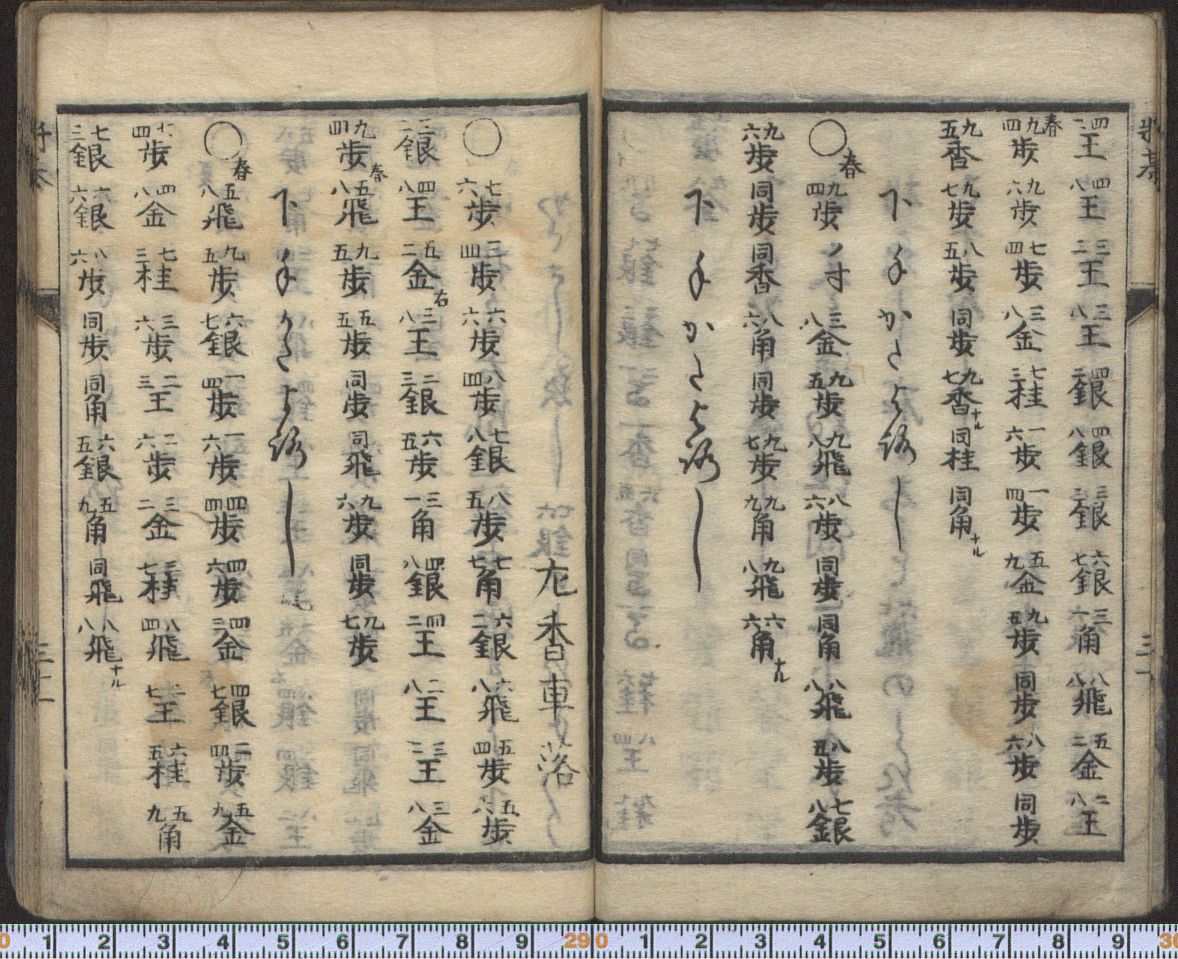 四二王 四八王 三二王 三八王 四二銀 四八銀 三三銀 六七銀 三六角 八八飛 五二金 二八王
春 九四歩 九六歩 七四歩 三八金 七三桂 一六歩 一四歩 五九金 九五歩 同歩 八六歩 同歩
九五香 九七歩 八五歩 同歩 九七香ナル 同桂 同角ナル
下手かたよろし
〇春 九四歩ノ寸 三八金 九五歩 九八飛 八六歩 同歩 同角 八八飛 八五歩 七八銀
九六歩 同歩 同香 八六角 同歩 九七歩 九九角 九八飛 六六角ナル
下手かたよろし
左香車落
〇 七六歩 三四歩 六六歩 八四歩 七八銀 八五歩 七七角 六二銀 六八飛 五四歩 五六歩
三二銀 四八王 五二金右 三八王 二三銀 六五歩 三一角 四八銀 四二王 二八王 三二王 三八金
九四歩 春 五八飛 九五歩 五五歩 同歩 同飛 九六歩 同歩 九七歩
下手かたよろし
〇春 五八飛 九五歩 六七銀 一四歩 一六歩 四四歩 四六歩 四三金 四七銀 二四歩 五九金
六四歩 四八金 七三桂 三六歩 二三王 二六歩 三二金 三七桂 八四飛 二七王 六五桂 五九角
七三銀 六六銀 八六歩 同歩 同角 六五銀 五九角 同飛 八八飛ナル